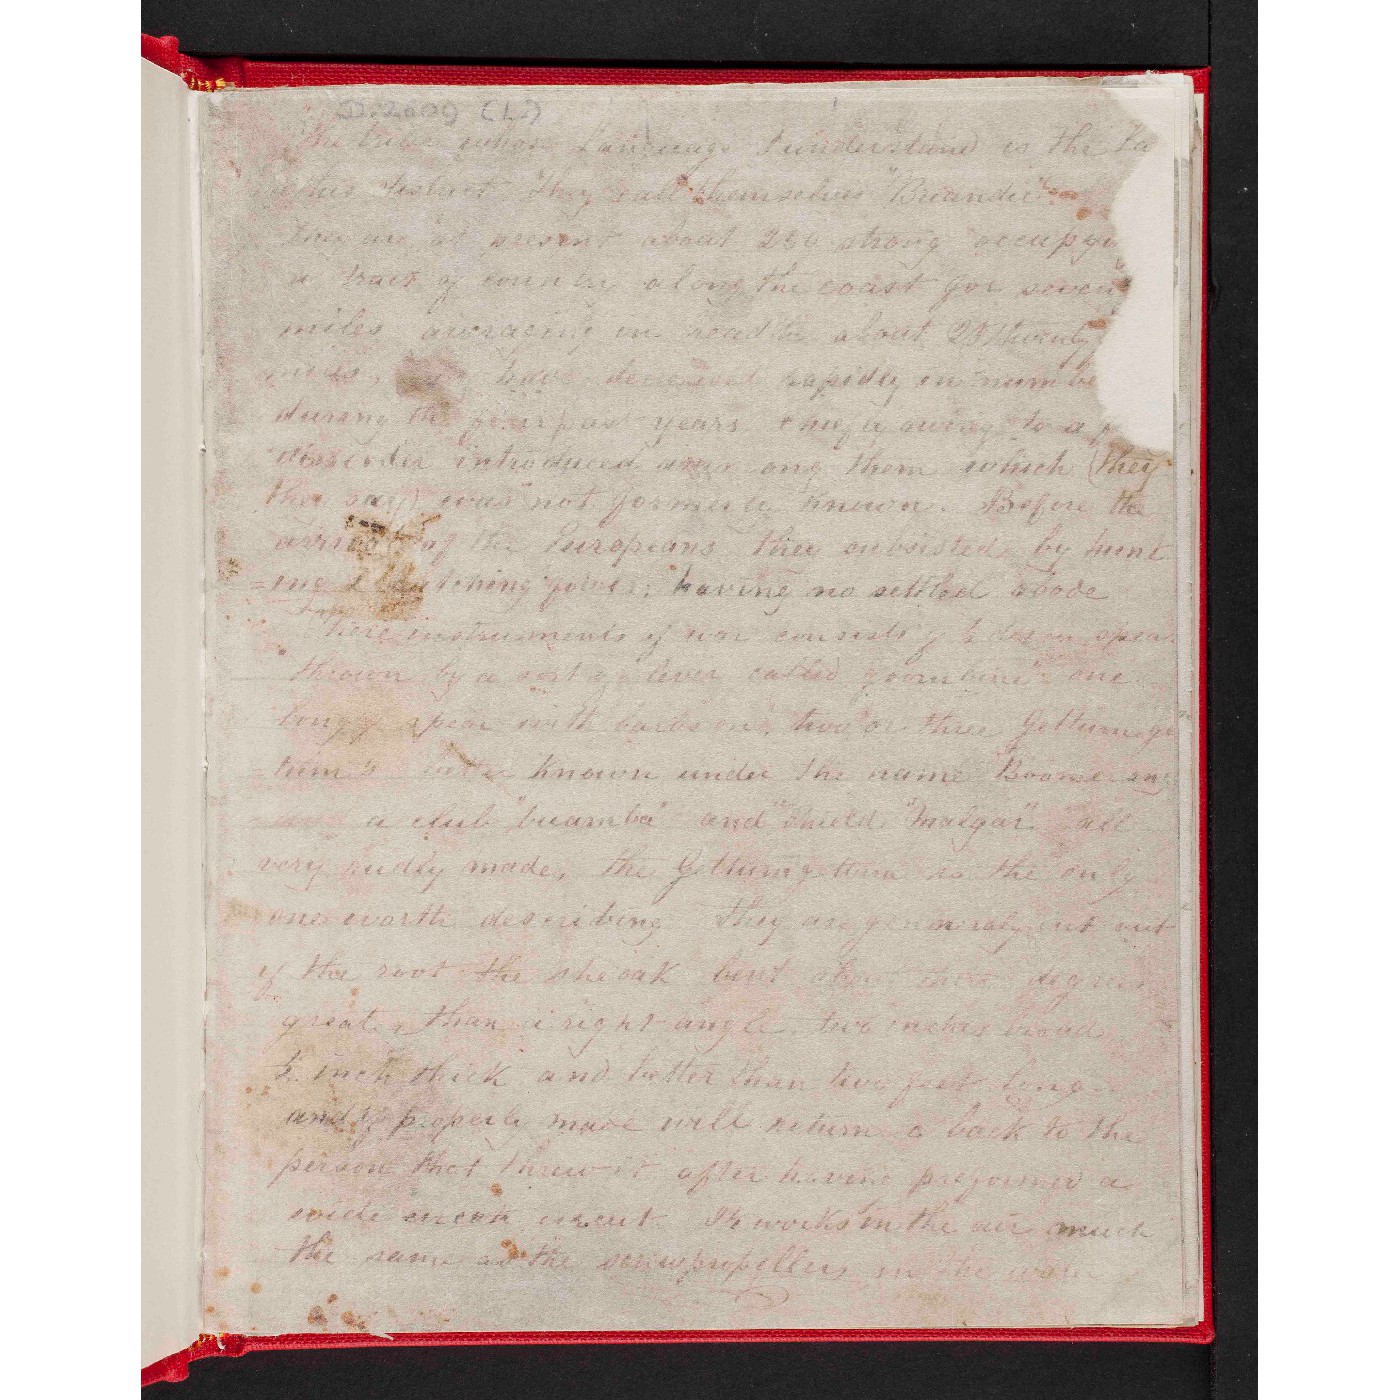 D.2009 (L)
The tribe whose Language I understand is the La
District They call themselves "Buandic"
They are at present about 260 strong occupying
a tract of country along the coast for seven
miles averaging in breadth about 25 twenty
miles, have decreased rapidly in numbe
during the few past years chiefly owing to a
disorder introduced among them which (they
they say) was not formerly known. Before the
arrival of the Europeans they subsisted by hunt
=ing & catching game; having no settled abode
There instruments of war consists of spear
thrown by a sort of lever called one
long spear with barbs on, two or three Gettumge
=tum's better known under the name Boomerang
a club "buamba" and shield "Malgar" all
very rudly made, the Gettumgettum is the only
one worth describing They are generaly cut out
of the root the sheoak bent about three degrees
greater than a right angle. two inches broad
½ inch thick and better than two feet long
and if properly made will return back to the
person that threw it after having preformed a
wide circut. It works in the air much
the same as the screwpropellers in the water